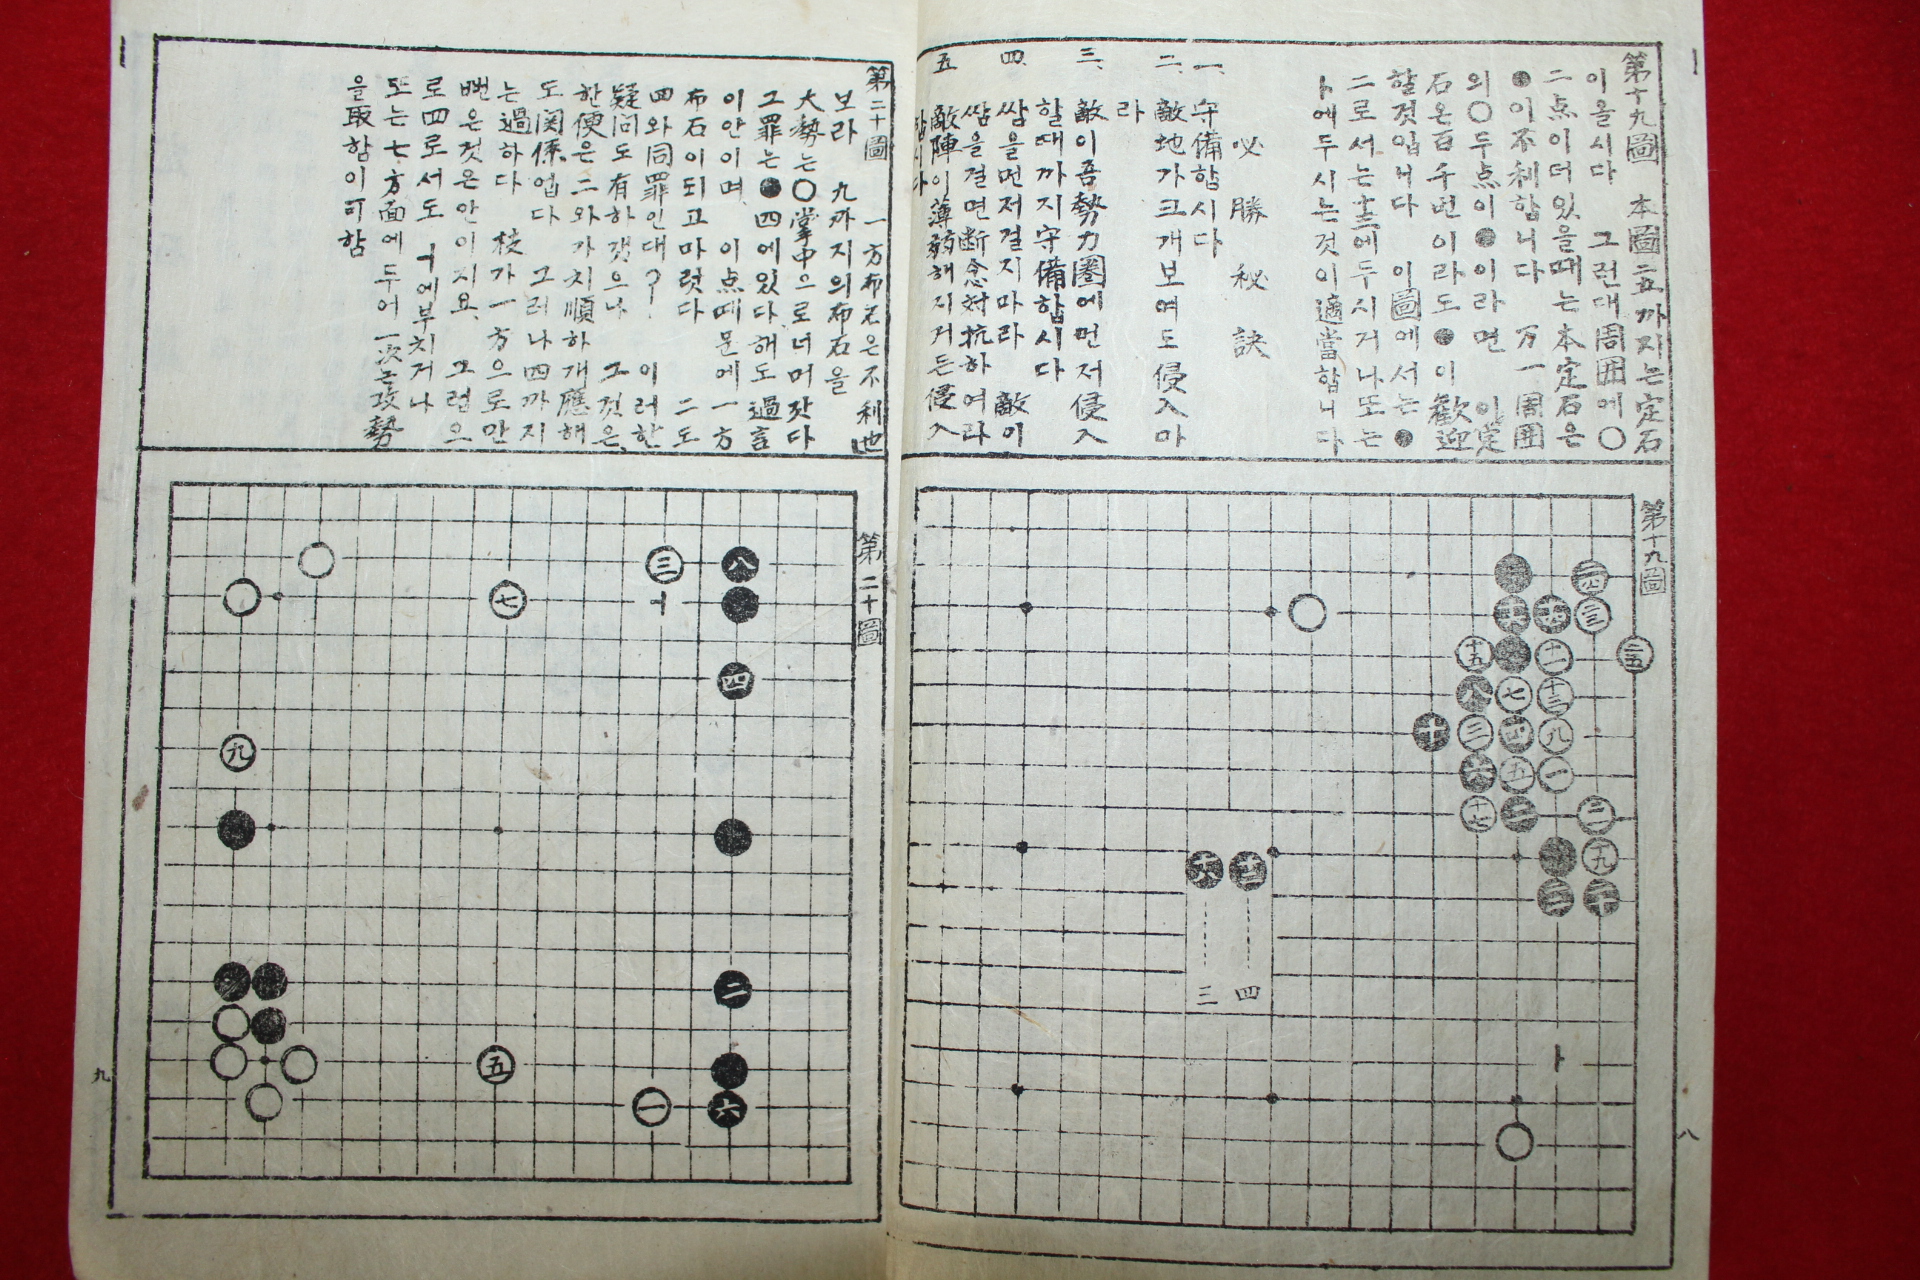 第十九圖 本圖二五까지는定石
이올시다 그런대周囲에○
二点이더있을때는本定石은
●이不利합니다 万一周囲
의○두点이●이라면 이定
石은百千번이라도●이歡迎
할것입니다 이圖에서는●
二로서는十三에두시거나또는
ㅏ에두시는것이適當합니다
必勝秘訣
一、守備합시다
二、敵地가크개보여도侵入마
라
三、敵이吾勢力圈에먼저侵入
할때까지守備합시다
四、쌈을먼저걸지마라 敵이
쌈을걸면断念対抗하여라
五 敵陣이薄弱해지거든侵入
합시다
第十九圖
二四
十四
十六
二三
十五
十一
二五
八
七
十三
十
三
四
九
六
五
一
十七
二
二一
十九
二二
二十
十八
三
四
ㅏ
八
第二十圖 一方布石은不利也
보라 九까지의布石을
大勢는○掌中으로너머갓다
그罪는●四에있다.해도過言
이안이며 이点때문에一方
布石이되고마럿다 二도
四와同罪인대? 이러한
疑问도有하갯으나 그것은
한便은二와가치順하개應해
도関係업다 그러나四까지
는過하다 枝가一方으로만
뻗은것은안이지요 그럼으
로四로서도ㅓ에부치거나
또는七方面에두어一次는攻勢
을取함이可함
第二十圖
三
八
七
ㅓ
四
九
二
五
一
六
九